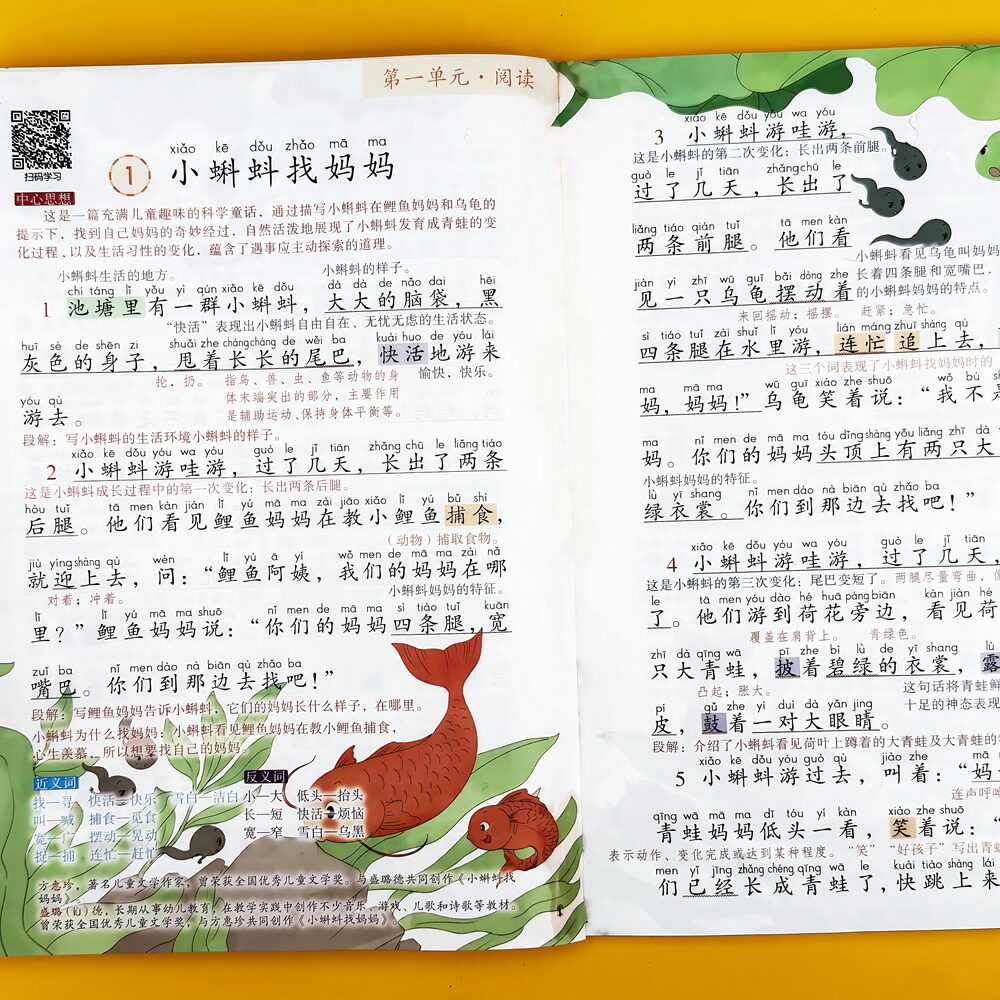 第一单元·阅读
扫码学习
xiǎo kē dǒu zhǎo mā ma
1 小蝌蚪找妈妈
中心思想
这是一篇充满儿童趣味的科学童话，通过描写小蝌蚪在鲤鱼妈妈和乌龟的
提示下，找到自己妈妈的奇妙经过，自然活泼地展现了小蝌蚪发育成青蛙的变
化过程，以及生活习性的变化，蕴含了遇事应主动探索的道理。
小蝌蚪生活的地方。 小蝌蚪的样子。
chí táng lǐ yǒu yì qún xiǎo kē dǒu dà dà de nǎo dai hēi
1 池塘里有一群小蝌蚪，大大的脑袋，黑
“快活”表现出小蝌蚪自由自在、无忧无虑的生活状态。
huī sè de shēn zi shuǎi zhe cháng cháng de wěi ba kuài huó de yóu lái
灰色的身子，甩着长长的尾巴，快活地游来
抡．扔。 指鸟、兽、虫、鱼等动物的身 愉快，快乐。
体末端突出的部分，主要作用
是辅助运动、保持身体平衡等。
yóu qù
游去。
段解：写小蝌蚪的生活环境小蝌蚪的样子。
xiǎo kē dǒu yóu wa yóu guò le jǐ tiān zhǎng chū le liǎng tiáo
2 小蝌蚪游哇游，过了几天，长出了两条
这是小蝌蚪成长过程中的第一次变化：长出两条后腿。
hòu tuǐ tā men kàn jiàn lǐ yú mā ma zài jiāo xiǎo lǐ yú bǔ shí
后腿。他们看见鲤鱼妈妈在教小鲤鱼捕食，
（动物）捕取食物。
jiù yíng shàng qù wèn lǐ yú ā yí wǒ men de mā ma zài nǎ
就迎上去，问：“鲤鱼阿姨，我们的妈妈在哪
对着；冲着。 小蝌蚪妈妈的特征。
lǐ lǐ yú mā ma shuō nǐ men de mā ma sì tiáo tuǐ kuān
里？”鲤鱼妈妈说：“你们的妈妈四条腿，宽
zuǐ ba nǐ men dào nà biān qù zhǎo ba
嘴巴。你们到那边去找吧！”
段解：写鲤鱼妈妈告诉小蝌蚪，它们的妈妈长什么样子，在哪里。
小蝌蚪为什么找妈妈：小蝌蚪看见鲤鱼妈妈在教小鲤鱼捕食，
心生羡慕，所以想要找自己的妈妈。
近义词
找—寻 快活—快乐 雪白—洁白
叫—喊 捕食—觅食
宽—广 摆动—晃动
捉—捕 连忙—赶忙
反义词
小—大 低头—抬头
长—短 快活—烦恼
宽—窄 雪白—乌黑
方惠珍，著名儿童文学作家，曾荣获全国优秀儿童文学奖。与盛璐德共同创作《小蝌蚪找
妈妈》。
盛璐（lù）德，长期从事幼儿教育，在教学实践中创作不少音乐、游戏、儿歌和诗歌等教材。
曾荣获全国优秀儿童文学奖，与方惠珍共同创作《小蝌蚪找妈妈》。
xiǎo kē dǒu yóu wa yóu
3 小蝌蚪游哇游，
这是小蝌蚪的第二次变化：长出两条前腿。
guò le jǐ tiān zhǎng chū le
过了几天，长出了
liǎng tiáo qián tuǐ tā men kàn
两条前腿。他们看
小蝌蚪看见乌龟叫妈妈
长着四条腿和宽嘴巴，
jiàn yì zhī wū guī bǎi dòng zhe
见一只乌龟摆动着
的小蝌蚪妈妈的特点。
来回摇动；摇摆。 赶紧；急忙。
sì tiáo tuǐ zài shuǐ lǐ yóu lián máng zhuī shàng qù
四条腿在水里游，连忙追上去，
这三个词表现了小蝌蚪找妈妈时的
ma mā ma wū guī xiào zhe shuō wǒ bú shì
妈，妈妈！”乌龟笑着说：“我不是
ma nǐ men de mā ma tóu dǐng shàng yǒu liǎng zhī dà
妈。你们的妈妈头顶上有两只大
小蝌蚪妈妈的特征。
lǜ yī shang nǐ men dào nà biān qù zhǎo ba
绿衣裳。你们到那边去找吧！”
xiǎo kē dǒu yóu wa yóu guò le jǐ tiān
4 小蝌蚪游哇游，过了几天，
这是小蝌蚪的第三次变化：尾巴变短了。 两腿尽量弯曲，
le tā men yóu dào hé huā páng biān kàn jiàn hé
了。他们游到荷花旁边，看见荷
覆盖在肩背上。 青绿色。
zhī dà qīng wā pī zhe bì lǜ de yī shang lù
只大青蛙，披着碧绿的衣裳，露
凸起；胀大。 这句话将青蛙鲜
十足的神态表现
pí gǔ zhe yí duì dà yǎn jīng
皮，鼓着一对大眼睛。
段解：介绍了小蝌蚪看见荷叶上蹲着的大青蛙及大青蛙的
xiǎo kē dǒu yóu guò qù jiào zhe mā
5 小蝌蚪游过去，叫着：“妈
连声呼
qīng wā mā ma dī tóu yí kàn xiào zhe shuō
青蛙妈妈低头一看，笑着说：“
表示动作、变化完成或达到某种程度。 “笑” “好孩子”写出青蛙
men yǐ jīng zhǎng chéng qīng wā le kuài tiào shàng lái
们已经长成青蛙了，快跳上来